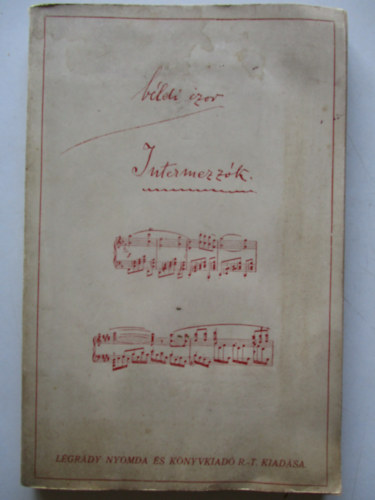 béldi izor
Intermezzók.
LÉGRÁDY NYOMDA ÉS KÖNYVKIADÓ R.-T. KIADÁSA